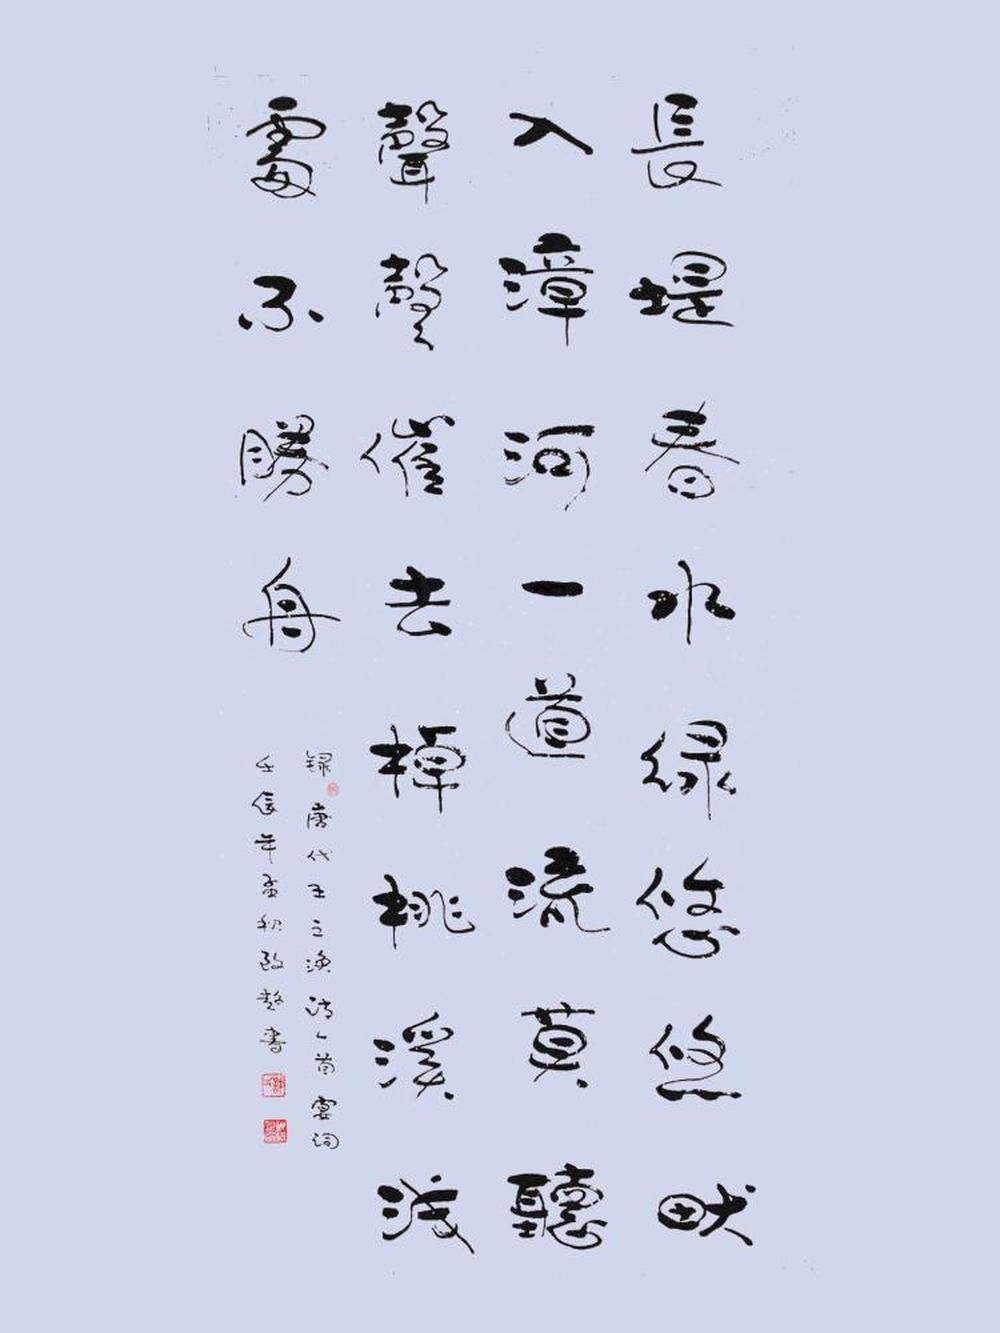 長堤春水緑悠悠畎
入漳河一道流莫聽
聲聲催去棹桃溪淺
處不勝舟
録唐代王之渙詩一首宴詞
壬辰年孟秋書